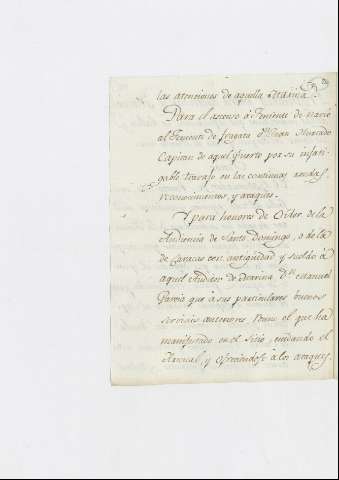 las atenciones de aquella Marina.
Para el ascenso à Teniente de navio
al Teniente de fragata Dn. Juan Hurtado
Capitan de aquel Puerto por su infati-
gable trabajo en las continuas rondas,
reconocimientos, y ataques.
Y para honores de Oidor de la
Audiencia de Santo Domingo, o de la
de Caracas con antigüedad y sueldo à
aquel Auditor de Marina Dn. Manuel
Garcia que à sus particulares buenos
servicios anteriores reune el que ha
manifestado en el sitio, cuidando el
Arsenal, y ofreciendose a los ataques.